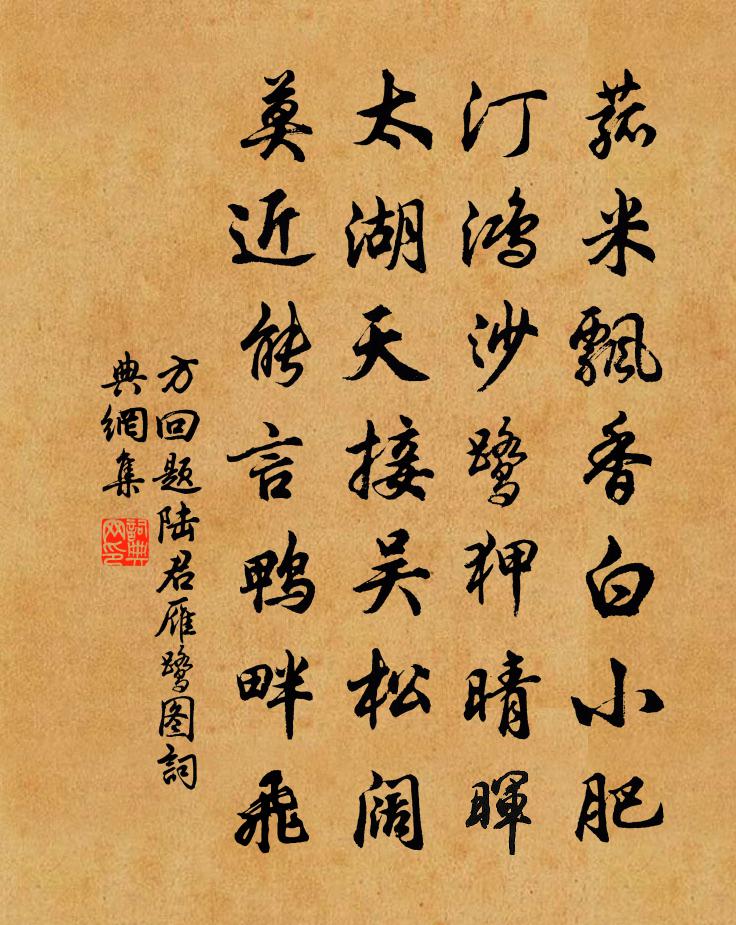 菰米飘香白小肥
汀鸿沙鹭狎晴晖
太湖天接吴松阔
莫近能言鸭畔飞
方回题陆君雁鹭图詞
典網集
詞典
网印